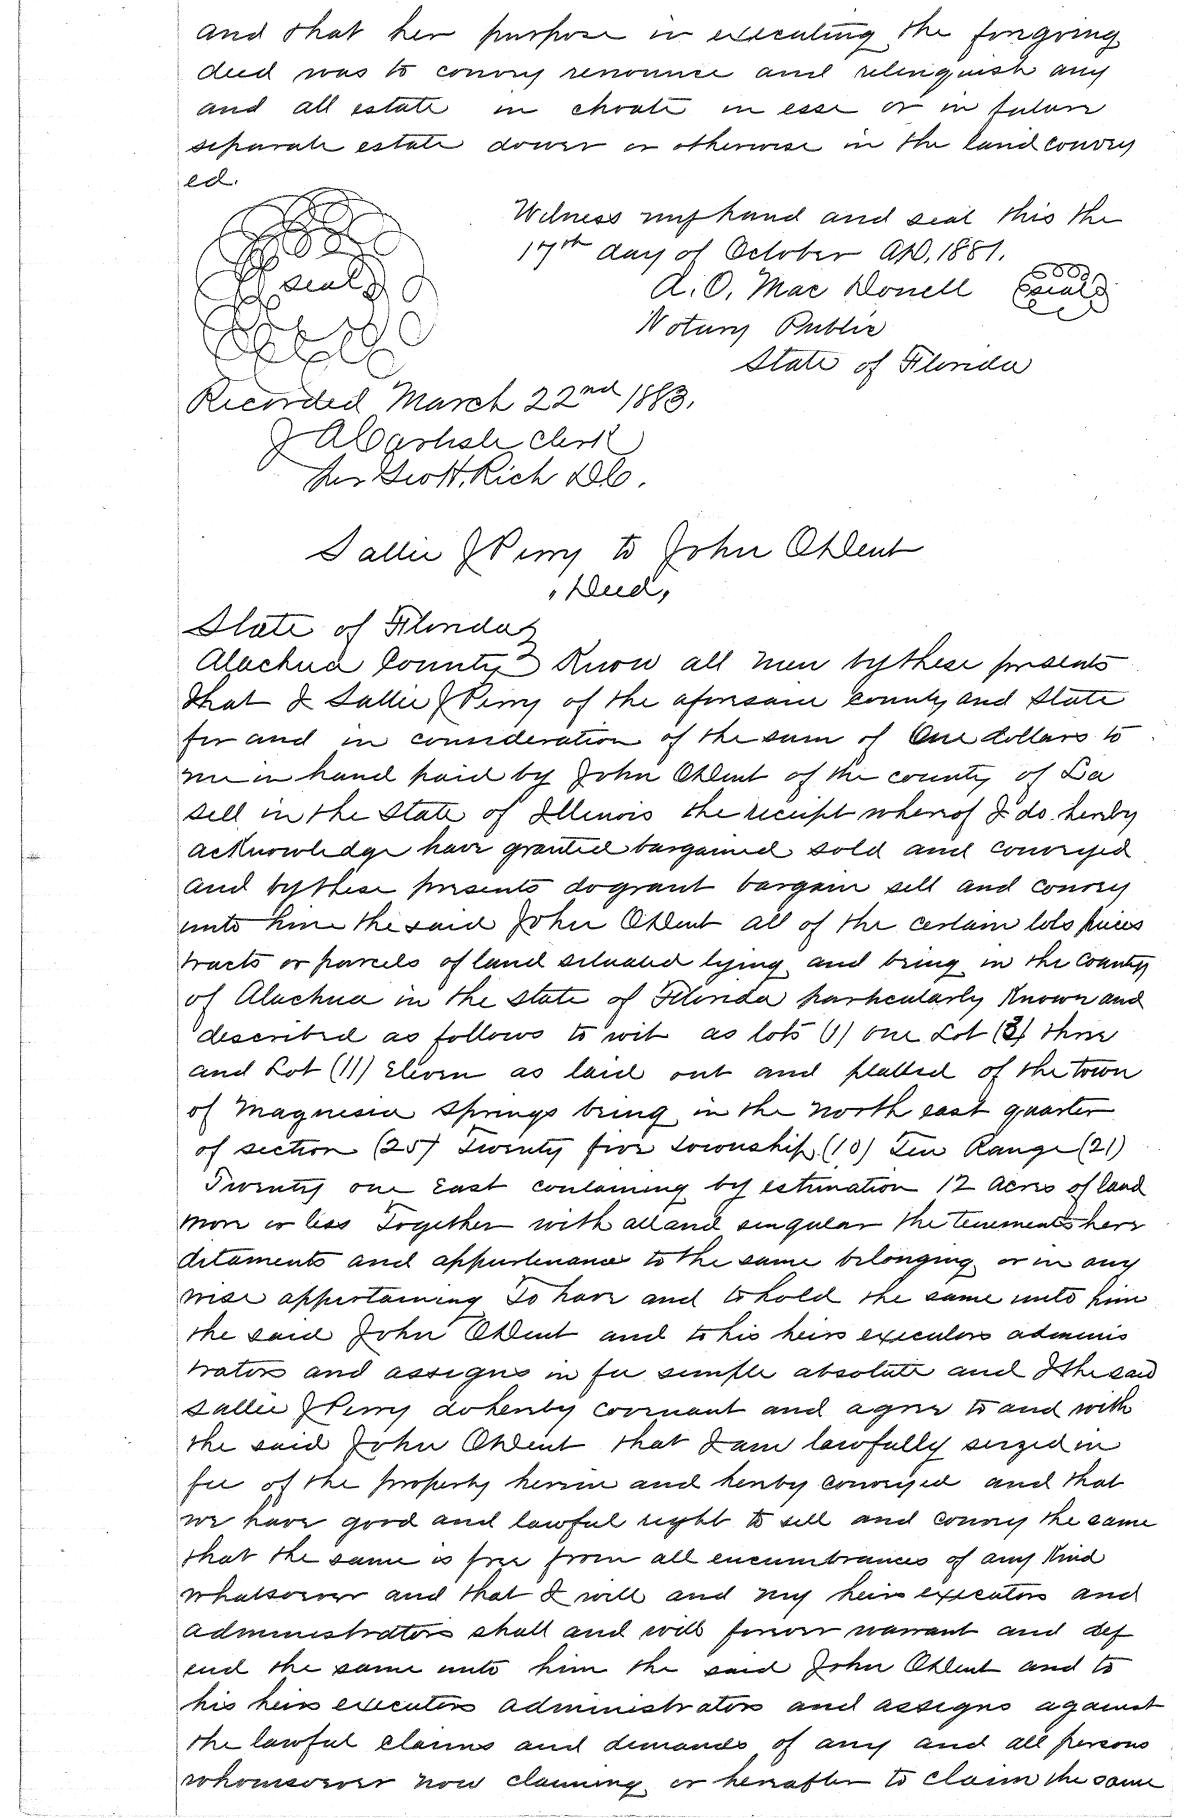 and that her purpose in executing the foregoing
deed was to convey renounce and relinquish any
and all estate in choate in esse or in future
separate estate dower or otherwise in the land convey
ed.
Witness my hand and seal this the
17th day of October AD. 1881.
seal
A. O. Mac Donell seal
Notary Public
State of Florida
Recorded March 22nd 1883.
J A Carlisle Clerk
per Geo H. Rich D.C.
Sallie J Perry to John Ohlent
"Deed,
State of Florida
Alachua County Know all men by these presents
that I Sallie J Perry of the aforesaid county and State
for and in consideration of the sum of One dollars to
me in hand paid by John Ohlent of the county of La
sell in the State of Illinois the receipt whereof I do hereby
acknowledge have granted bargained sold and conveyed
and by these presents do grant bargain sell and convey
unto him the said John Ohlent all of the certain lots pieces
tracts or parcels of land situated lying and being in the County
of Alachua in the state of Florida particularly known and
described as follows to wit as lots (1) one Lot (3) three
and Lot (11) Eleven as laid out and platted of the town
of Magnesia Springs being in the north east quarter
of section (25) Twenty five township (10) Ten Range (21)
Twenty one East containing by estimation 12 acres of land
more or less Together with all and singular the tenements here
ditaments and appurtenance to the same belonging or in any
wise appertaining To have and to hold the same unto him
the said John Ohlent and to his heirs executors adminis
trators and assigns in fee simple absolute and I the said
Sallie J Perry do hereby covenant and agree to and with
the said John Ohlent that I am lawfully seized in
fee of the property herein and hereby conveyed and that
we have good and lawful right to sell and convey the same
that the same is free from all encumbrances of any kind
whatsoever and that I will and my heirs executors and
administrators shall and will forever warrant and def
end the same unto him the said John Ohlent and to
his heirs executors administrators and assigns against
the lawful claims and demands of any and all persons
whomsoever now claiming or hereafter to claim the same